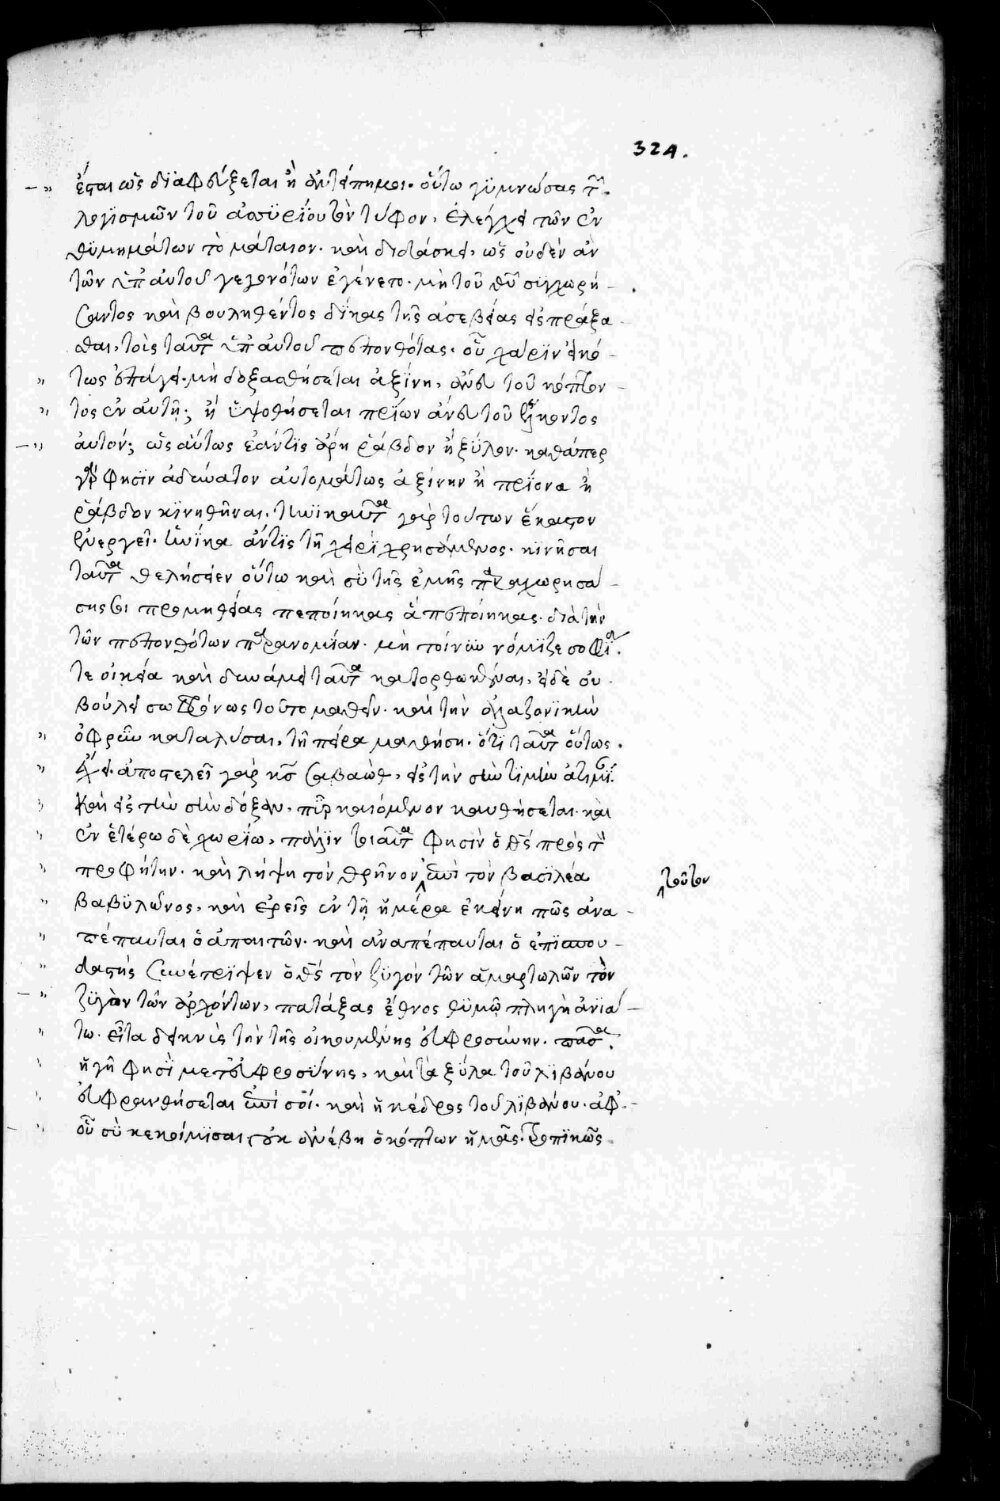 324.
ἔσται ὡς διαφεύξεται ἢ ἀντείπῃ μοι. οὕτω γυμνώσας τῶν
λογισμῶν τοῦ ἀσσυρίου τὸν τύφον, ἐλέγχει τῶν ἐν
θυμημάτων τὸ μάταιον. καὶ διδάσκει, ὡς οὐδὲν ἂν
τῶν ὑπ' αὐτοῦ γεγονότων ἐγένετο. μὴ τοῦ θῦ συγχωρή
σαντος καὶ βουληθέντος δίκας τῆς ἀσεβείας εἰσπράξα
σθαι, τοὺς ταῦτα ὑπ' αὐτοῦ πεπονθότας. οὗ χάριν εἰκό
τως ἐπάγει. μὴ δοξασθήσεται ἀξίνη, ἄνευ τοῦ κόπτον
τος ἐν αὐτῇ; ἢ ὑψωθήσεται πρίων ἄνευ τοῦ ἕλκοντος
αὐτόν; ὡς αὔτως ἐάν τις ἄρῃ ῥάβδον ἢ ξύλον. καθάπερ
γάρ φησιν ἀδύνατον αὐτομάτως ἀξίνην ἢ πρίονα ἢ
ῥάβδον κινηθῆναι. τηνικαῦτα γὰρ τούτων ἕκαστον
ἐνεργεῖ. ἡνίκα ἄν τις τῇ χειρὶ χρησάμενος. κινῆσαι
ταῦτα θελήσειεν οὕτω καὶ σὺ τῆς ἐμῆς παραχωρησά
σης σοι προμηθείας πεποίηκας ἅπερ πεποίηκας. διὰ τὴν
τῶν πεπονθότων παρανομίαν. μὴ τοίνυν νόμιζε σοφίᾳ
τε οἰκείᾳ καὶ δυνάμει ταῦτα κατορθωκέναι, εἰ δὲ οὐ
βούλει σωφρόνως τοῦτο μαθεῖν. καὶ τὴν ἀλαζονικὴν
ὀφρῦν καταλῦσαι, τῇ πείρᾳ μαθήσῃ. ὅτι ταῦτα οὕτως
ἔχει. ἀποστελεῖ γὰρ κς σαβαὼθ, εἰς τὴν σὴν τιμὴν ἀτιμίαν.
καὶ εἰς τὴν σὴν δόξαν, πῦρ καιόμενον καυθήσεται. καὶ
ἐν ἑτέρῳ δὲ χωρίῳ, πάλιν τοιαῦτα φησὶν ὁ θς πρὸς τὸν
προφήτην. καὶ λήψῃ τὸν θρῆνον ἐπὶ τὸν βασιλέα
τοῦτον
βαβυλῶνος, καὶ ἐρεῖς ἐν τῇ ἡμέρᾳ ἐκείνῃ πῶς ἀνα
πέπαυται ὁ ἀπαιτῶν. καὶ ἀναπέπαυται ὁ ἐπισπου
δαστής συνέτριψεν ὁ θς τὸν ζυγὸν τῶν ἁμαρτωλῶν τὸν
ζυγὸν τῶν ἀρχόντων, πατάξας ἔθνος θυμῷ πληγῇ ἀνιά
τῳ. εἶτα δεικνὺς τὴν τῆς οἰκουμένης εὐφροσύνην. πᾶσα
ἡ γῆ φησὶ μετ' εὐφροσύνης, καὶ τὰ ξύλα τοῦ λιβάνου
εὐφρανθήσεται ἐπὶ σοί. καὶ ἡ κέδρος τοῦ λιβάνου. ἀφ'
οὗ σὺ κεκοίμισαι, οὐκ ἀνέβη ὁ κόπτων ἡμᾶς. τροπικῶς